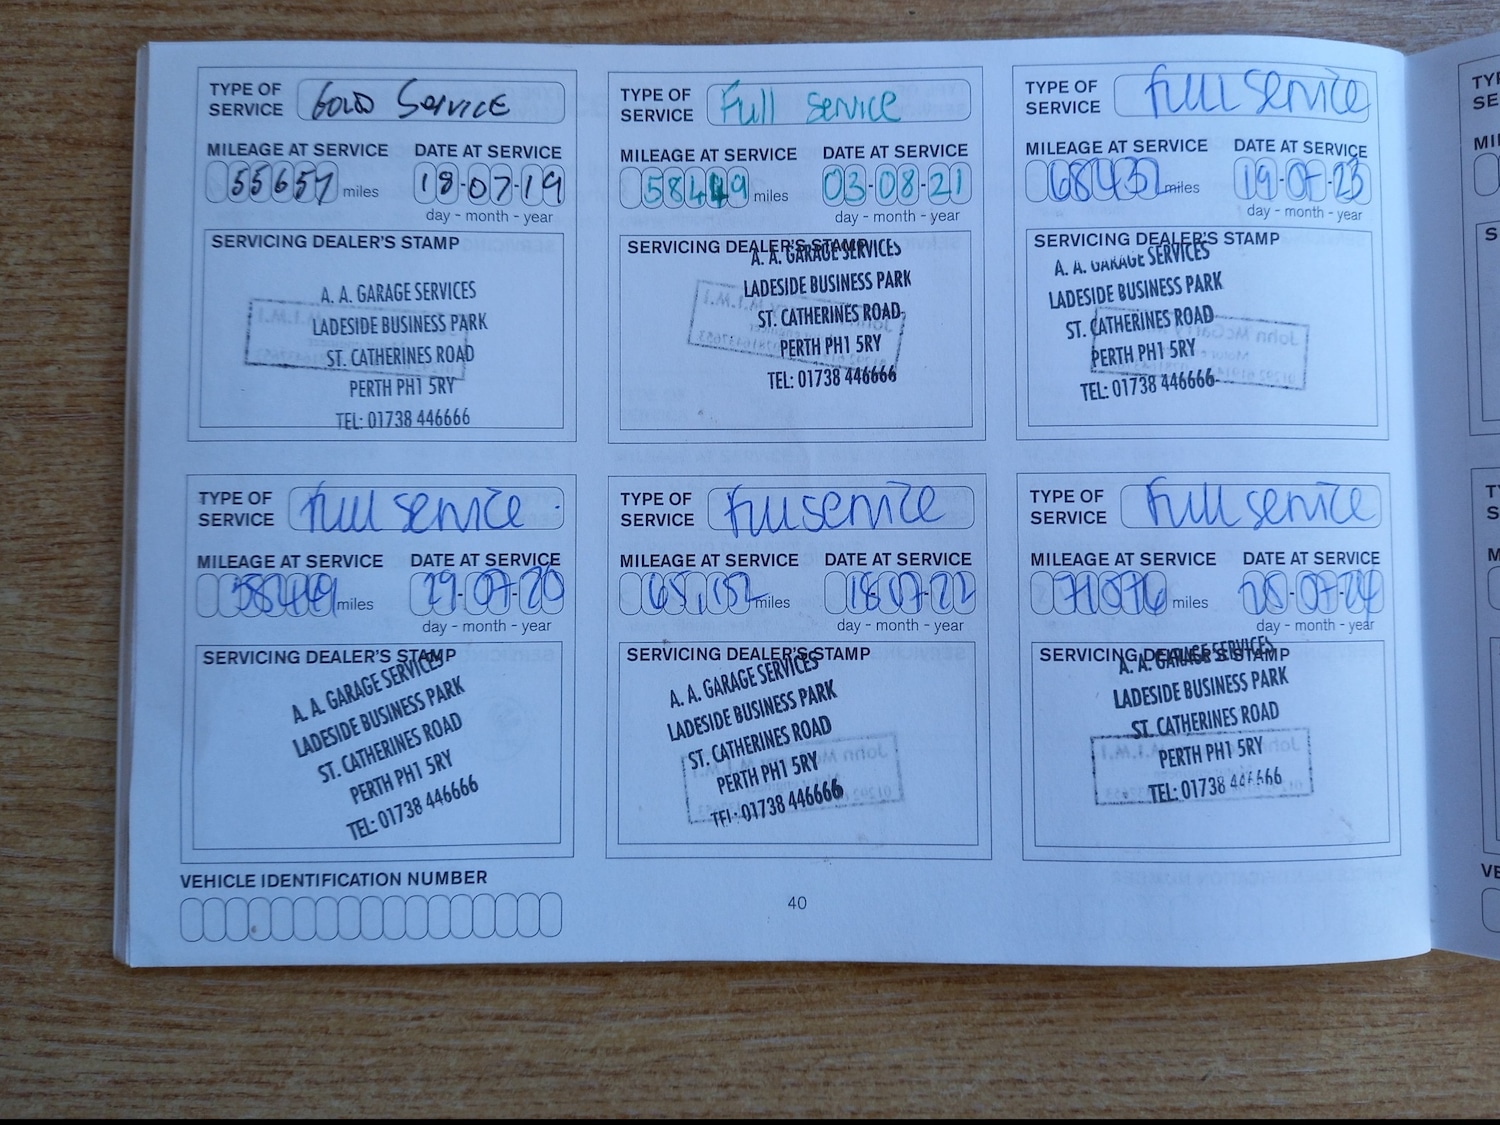 TYPE OF SERVICE Gold Service
MILEAGE AT SERVICE DATE AT SERVICE
55657 miles 18-07-19
day - month - year
SERVICING DEALER'S STAMP
A. A. GARAGE SERVICES
LADESIDE BUSINESS PARK
ST. CATHERINES ROAD
PERTH PH1 5RY
TEL: 01738 446666
TYPE OF SERVICE Full Service
MILEAGE AT SERVICE DATE AT SERVICE
58449 miles 03-08-21
day - month - year
SERVICING DEALER'S STAMP
A. A. GARAGE SERVICES
LADESIDE BUSINESS PARK
ST. CATHERINES ROAD
PERTH PH1 5RY
TEL: 01738 446666
TYPE OF SERVICE Full Service
MILEAGE AT SERVICE DATE AT SERVICE
68432 miles 19-07-23
day - month - year
SERVICING DEALER'S STAMP
A. A. GARAGE SERVICES
LADESIDE BUSINESS PARK
ST. CATHERINES ROAD
PERTH PH1 5RY
TEL: 01738 446666
TYPE OF SERVICE Full Service
MILEAGE AT SERVICE DATE AT SERVICE
miles 29-07-20
day - month - year
SERVICING DEALER'S STAMP
A. A. GARAGE SERVICES
LADESIDE BUSINESS PARK
ST. CATHERINES ROAD
PERTH PH1 5RY
TEL: 01738 446666
TYPE OF SERVICE Full Service
MILEAGE AT SERVICE DATE AT SERVICE
65,152 miles 18-07-22
day - month - year
SERVICING DEALER'S STAMP
A. A. GARAGE SERVICES
LADESIDE BUSINESS PARK
ST. CATHERINES ROAD
PERTH PH1 5RY
TEL: 01738 446666
TYPE OF SERVICE Full Service
MILEAGE AT SERVICE DATE AT SERVICE
71076 miles
day - month - year
SERVICING DEALER'S STAMP
A. A. GARAGE SERVICES
LADESIDE BUSINESS PARK
ST. CATHERINES ROAD
PERTH PH1 5RY
TEL: 01738 446666
VEHICLE IDENTIFICATION NUMBER
40